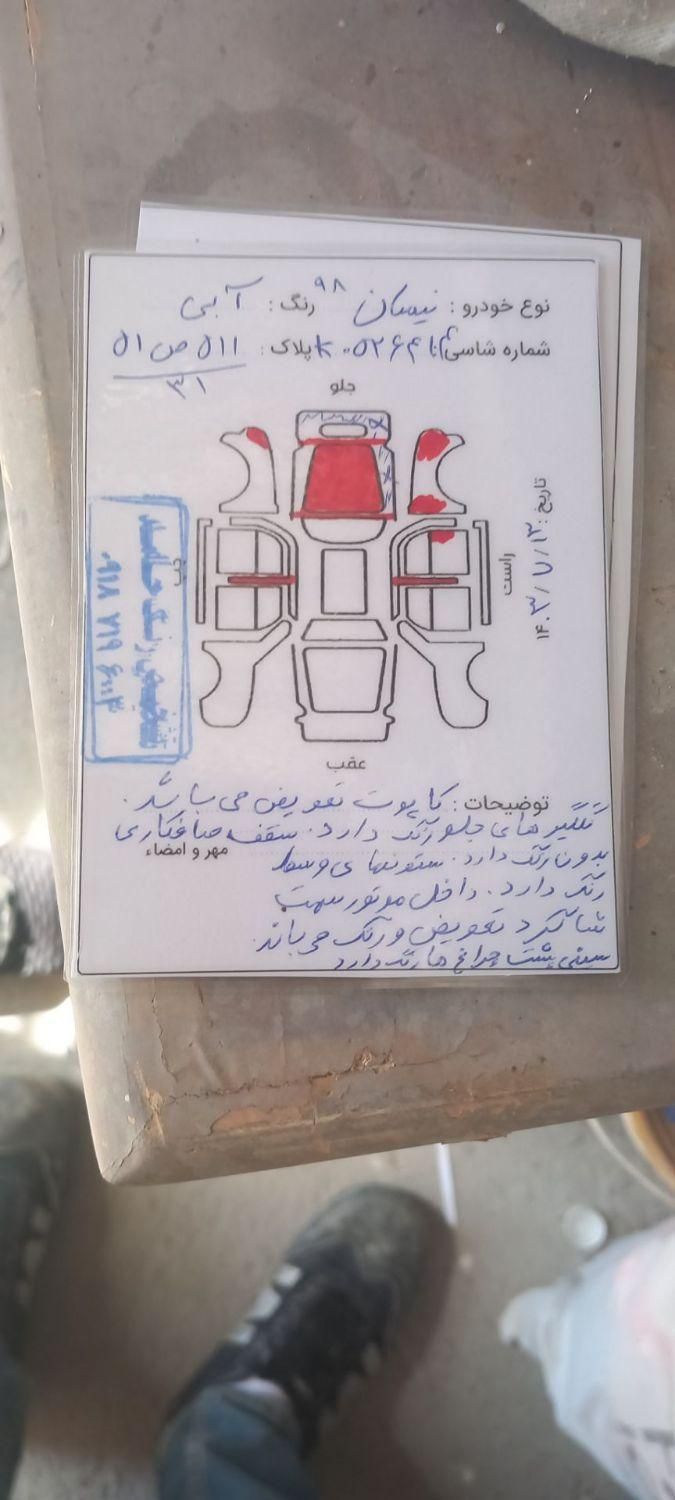 نوع خودرو : نیسان ۹۸ رنگ : آبی
شماره شاسی : پلاک : ۵۱ ص ۵۱۱
۳۱
جلو
تاریخ : ۱۴۰۳/۷/۱۲
راست
چپ
تشخیص رنگ
عقب
توضیحات : کاپوت تعویض می باشد .
گلگیر های جلو رنگ دارد . سقف صافکاری
بدون رنگ دارد . ستونهای وسط
مهر و امضاء
رنگ دارد . داخل موتور سمت
شاگرد تعویض و رنگ می باشد .
سینی پشت چراغ ها رنگ دارد